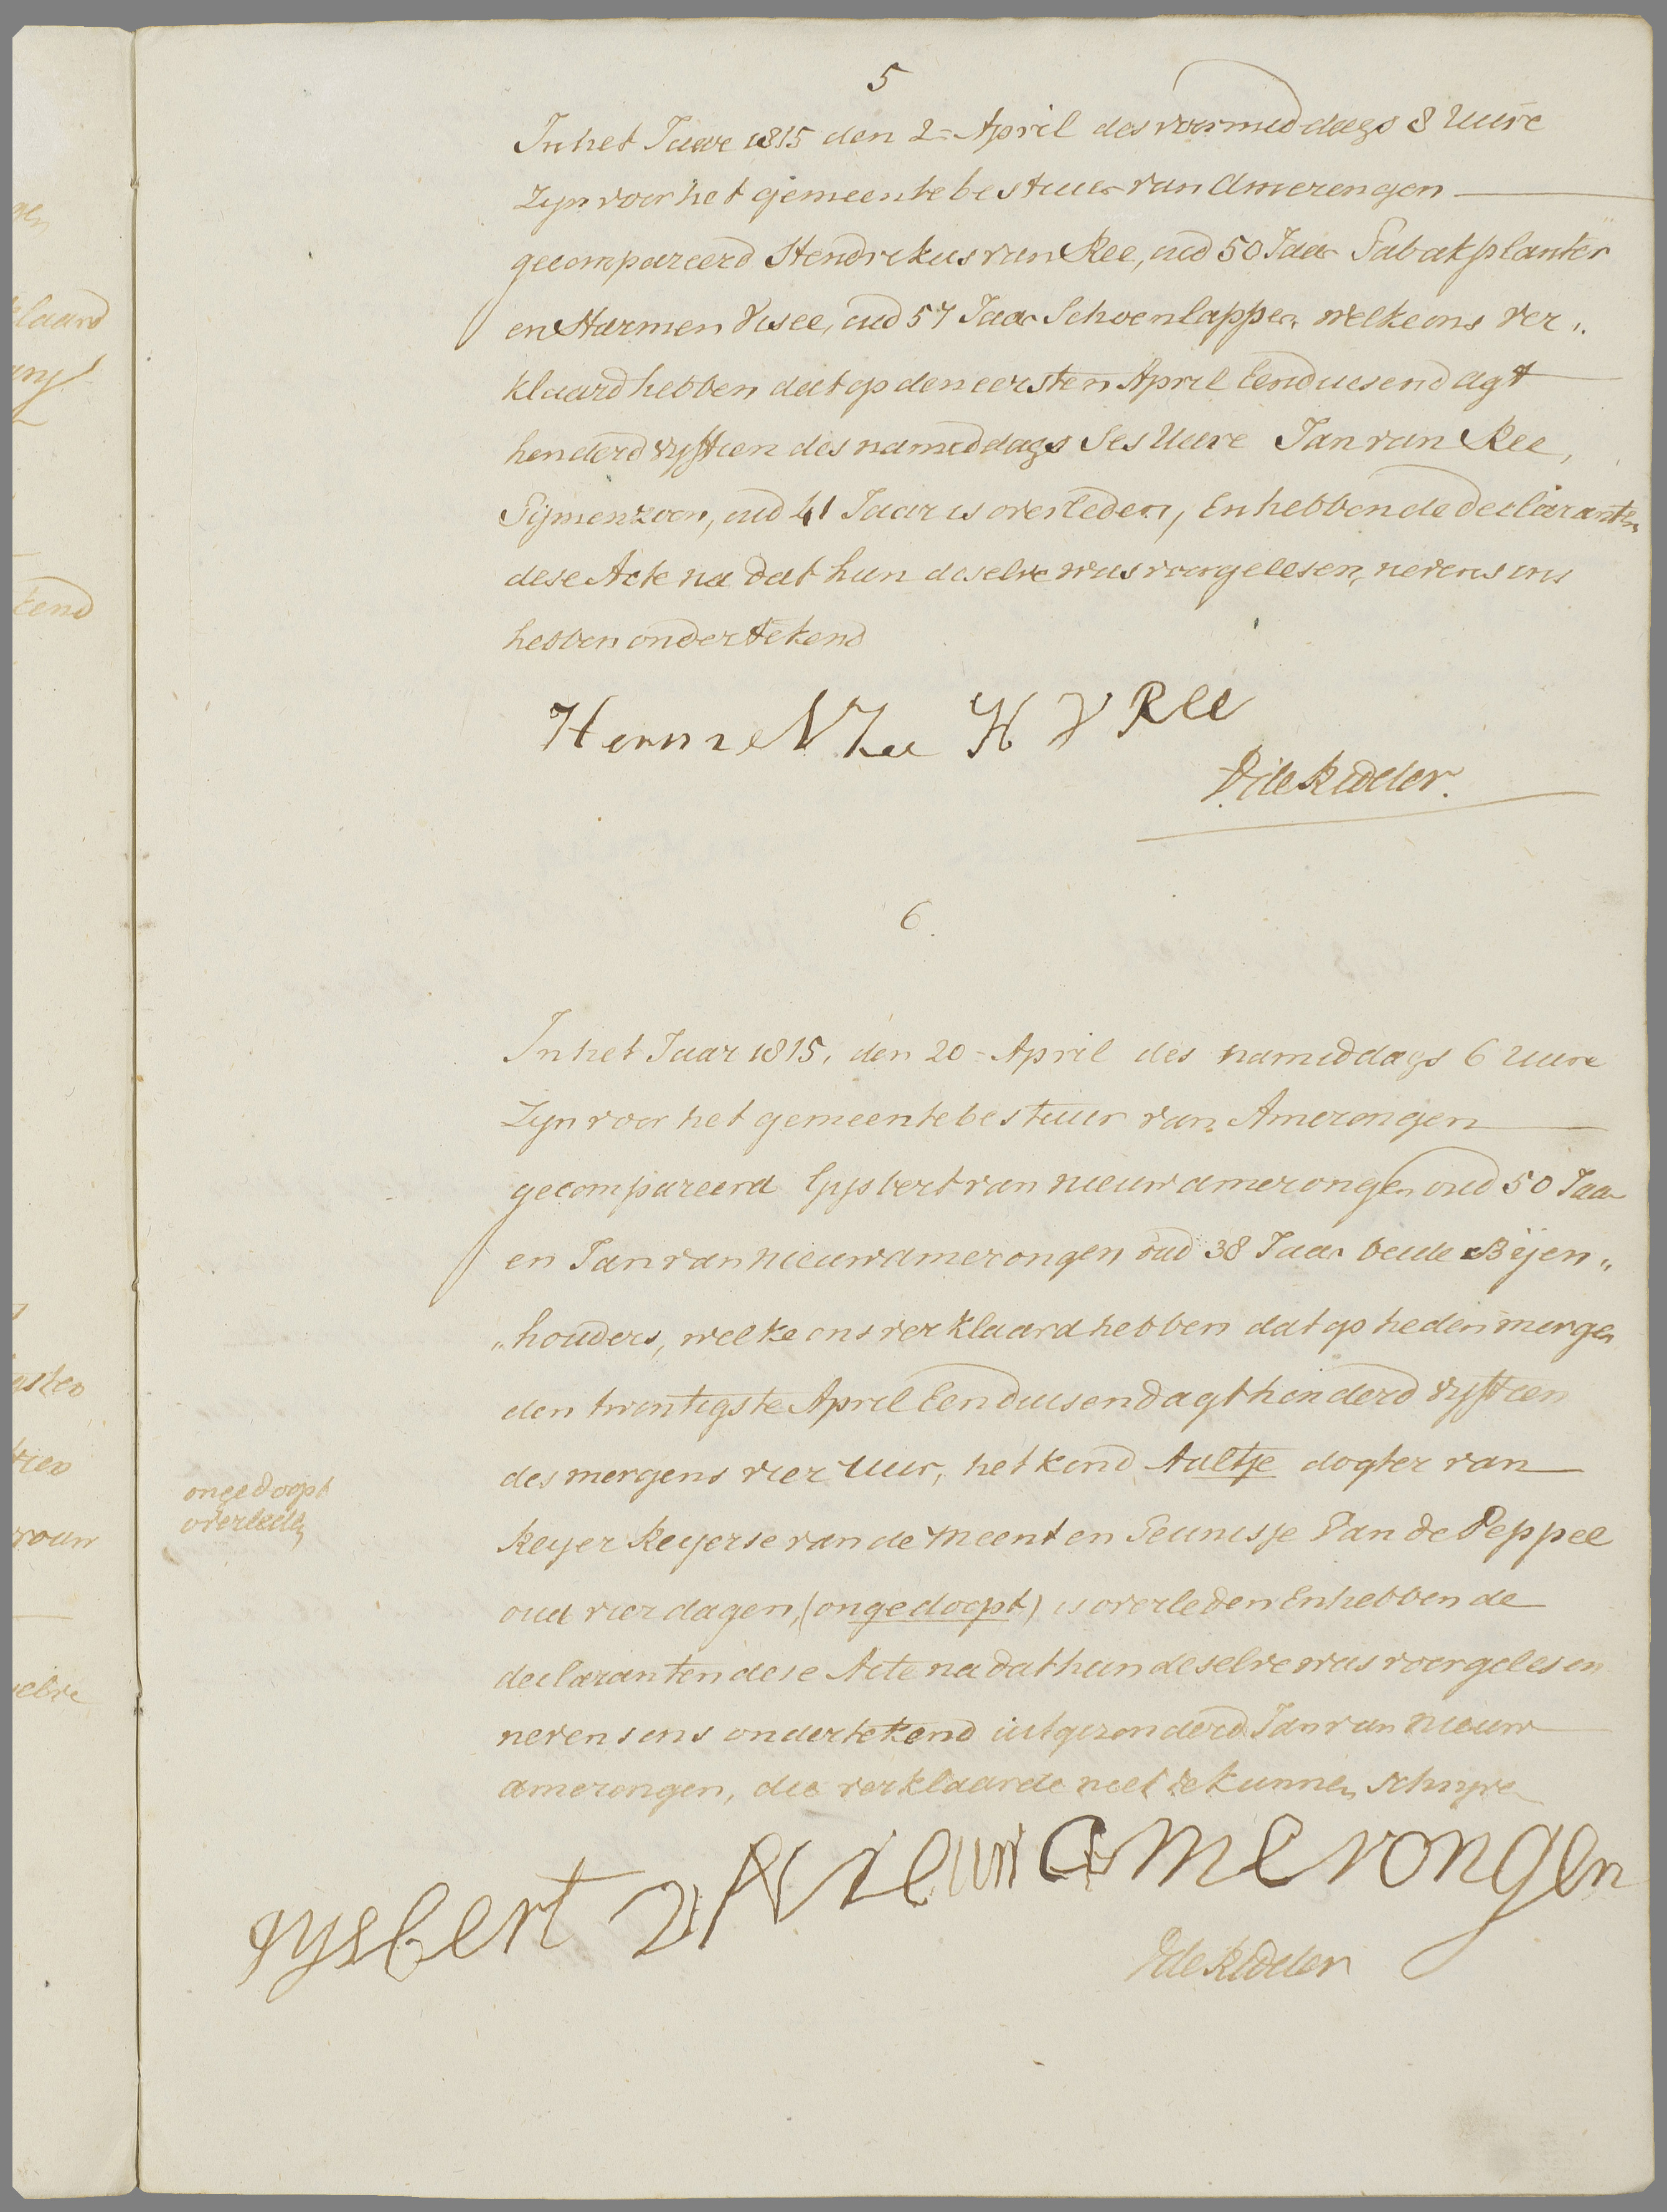 5
In het Jaare 1815 den 2= April des voormiddags 8 Uure
Zyn voor het gemeentebestuur van Amerongen
gecompareerd Hendrikus van Ree, oud 50 Jaar Tabakplanter
en Harmen Visee, oud 57 Jaar Schoenlapper, welke ons ver„
klaard hebben dat op den eersten April Eenduesend agt
honderd vyftien des namiddags Ses Uure Jan van Ree,
Tijmenzoon, oud 41 Jaar is overleden, En hebben de declaranten
dese Acte na dat hun deselve was voorgelesen, nevens ons
hebben ondertekend
H V Ree
P. de Ridder.
6.
In het Jaar 1815, den 20= April des namiddags 6 Uure
Zyn voor het gemeentebestuur van Amerongen
gecompareerd Gysbert van nieuw amerongen oud 50 Jaar
en Jan van nieuwamerongen oud 38 Jaar beide Bijen„
„houders, welke ons verklaard hebben dat op heden mergen
den twintigste April Eenduisend agt honderd vyftien
des mergens vier Uur, het kind Aaltje dogter van
ongedoopt
overleden
Keyer Keyerse van de Meent en Teunisje Van de Peppel
oud vier dagen, (ongedoopt) is overleden En hebben de
declaranten dese Acte na dat hun deselve was voorgelesen
nevens ons ondertekend uitgezonderd Jan van nieuw
amerongen, die verklaarde niet te kunnen schryven
gysbert v Nieuw amerongen
P de Ridder
gen
klaard
Eend
gsten
vrouw
selve